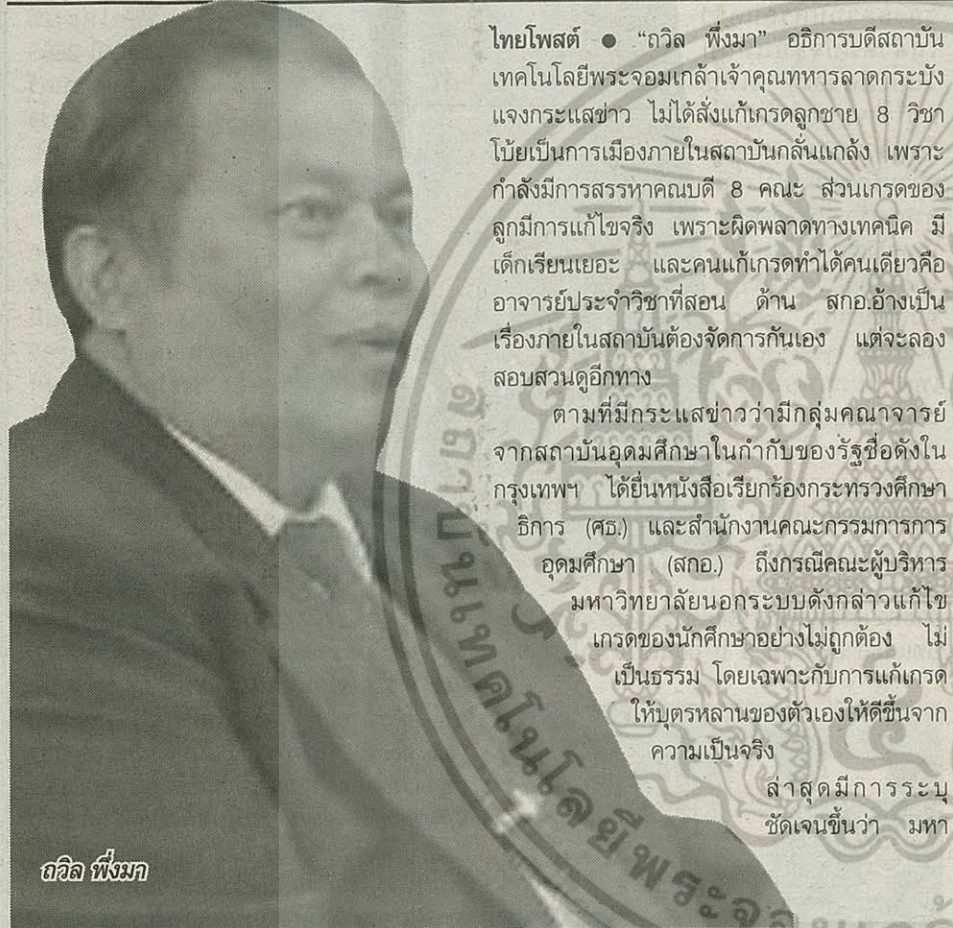 ไทยโพสต์ ● “ถวิล พึ่งมา” อธิการบดีสถาบัน
เทคโนโลยีพระจอมเกล้าเจ้าคุณทหารลาดกระบัง
แจงกระแสข่าว ไม่ได้สั่งแก้เกรดลูกชาย 8 วิชา
โบ้ยเป็นการเมืองภายในสถาบันกลั่นแกล้ง เพราะ
กำลังมีการสรรหาคณบดี 8 คณะ ส่วนเกรดของ
ลูกมีการแก้ไขจริง เพราะผิดพลาดทางเทคนิค มี
เด็กเรียนเยอะ และคนแก้เกรดทำได้คนเดียวคือ
อาจารย์ประจำวิชาที่สอน ด้าน สกอ.อ้างเป็น
เรื่องภายในสถาบันต้องจัดการกันเอง แต่จะลอง
สอบสวนดูอีกทาง
ตามที่มีกระแสข่าวว่ามีกลุ่มคณาจารย์
จากสถาบันอุดมศึกษาในกำกับของรัฐชื่อดังใน
กรุงเทพฯ ได้ยื่นหนังสือเรียกร้องกระทรวงศึกษา
ธิการ (ศธ.) และสำนักงานคณะกรรมการการ
อุดมศึกษา (สกอ.) ถึงกรณีคณะผู้บริหาร
มหาวิทยาลัยนอกระบบดังกล่าวแก้ไข
เกรดของนักศึกษาอย่างไม่ถูกต้อง ไม่
เป็นธรรม โดยเฉพาะกับการแก้เกรด
ให้บุตรหลานของตัวเองให้ดีขึ้นจาก
ความเป็นจริง
ล่าสุดมีการระบุ
ชัดเจนขึ้นว่า มหา
ถวิล พึ่งมา
สถาบันเทคโนโลยีพระจอมเกล้